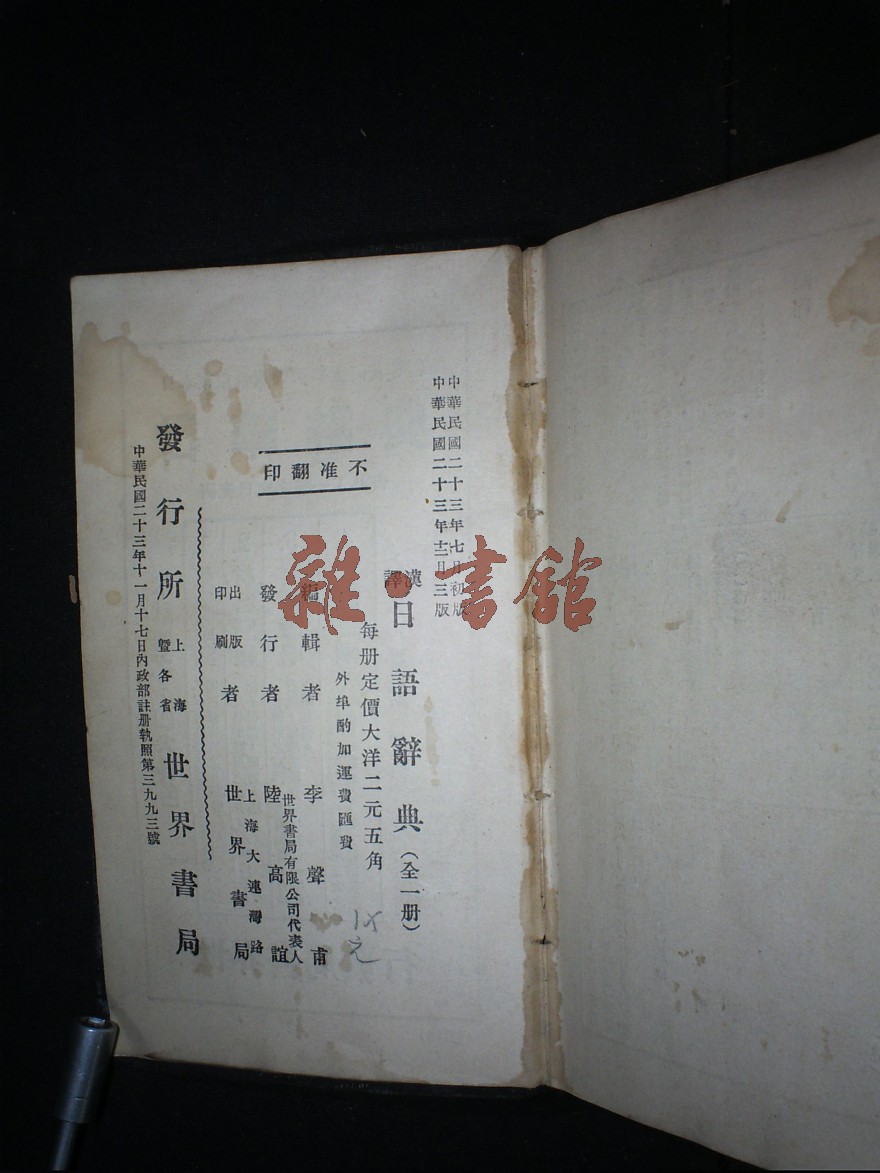 中華民國二十三年七月初版
中華民國二十三年十二月三版
漢譯日語辭典（全一册）
每册定價大洋二元五角
外埠酌加運費匯費
不准翻印
編輯者 李聲甫
發行者 世界書局有限公司代表人 陸高誼
出版印刷者 上海大連灣路 世界書局
發行所 上海暨各省 世界書局
中華民國二十三年十一月十七日內政部註册執照第三九九三號
元
雜·書館